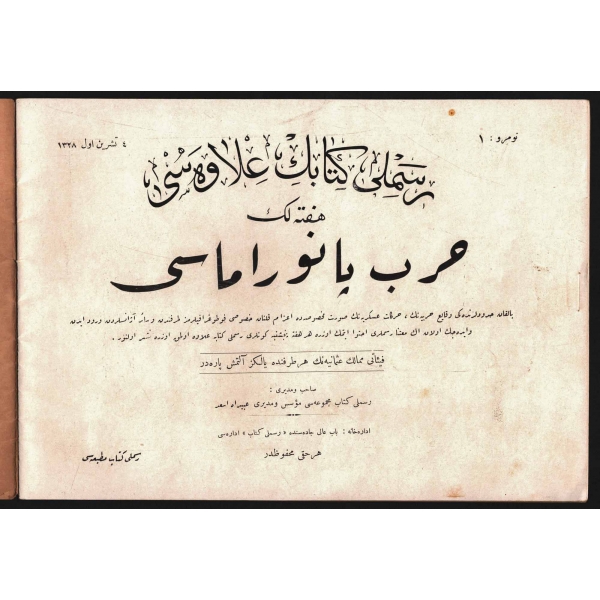 نومرو : ١
٤ تشرین اول ١٣٢٨
رسملی كتابك علاوه‌سی
هفته لك
حرب پانوراماسی
بالقان حدودلرنده‌كی وقایع حربیه‌نك ، حركات عسكریه‌نك صورت مخصوصه‌ده اعزام قلنان خصوصی فوطوغرافیلرمز طرفندن وسائر آژانسلردن ورود ایدن
وایده‌جك اولان اك معتنا رسملری احتوا ایتمك اوزره هر هفته پنجشنبه كونلری رسملی كتابه علاوه اولمق اوزره نشر اولنور .
فیئاتی ممالك عثمانیه‌نك هر طرفنده یالكز آلتمش پاره‌در
صاحب ومدیری :
رسملی كتاب مجموعه‌سی مؤسس ومدیری عبیدالله اسعد
اداره‌خانه : باب عالی جاده‌سنده « رسملی كتاب » اداره‌سی
هر حقی محفوظدر
رسملی كتاب مطبعه‌سی